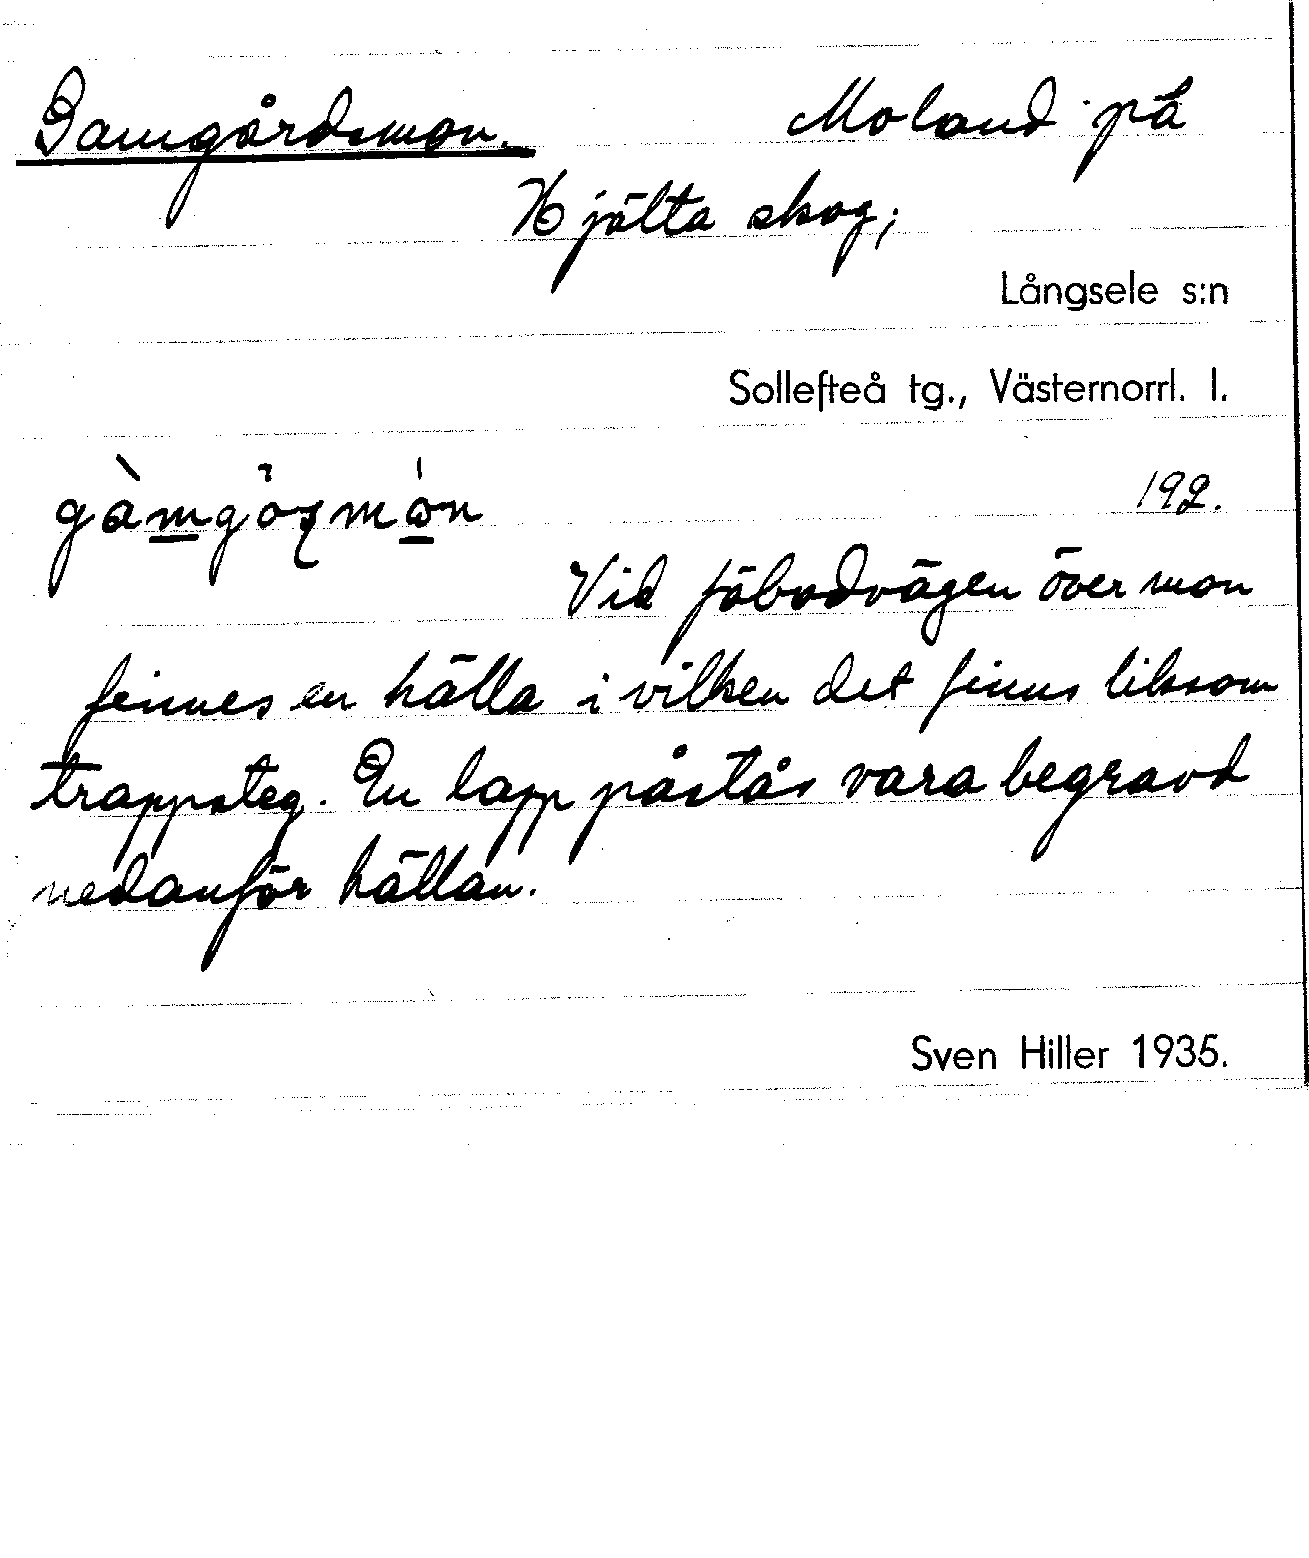 Gamgårdsmon. Moland på
Hjälta skog;
Långsele s:n
Sollefteå tg., Västernorrl. l.
192.
Vid fäbodvägen över mon
finnes en hälla i vilken det finns liksom
trappsteg. En lapp påstås vara begravd
nedanför hällan.
Sven Hiller 1935.